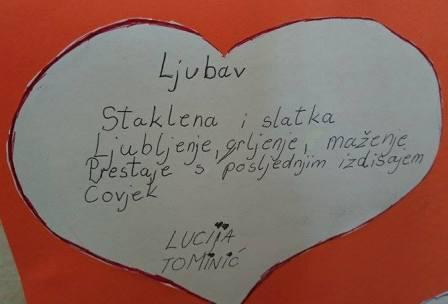 Ljubav
Staklena i slatka
Ljubljenje, grljenje, maženje
Prestaje s posljednjim izdisajem
Covjek
LUCIJA
TOMINIĆ